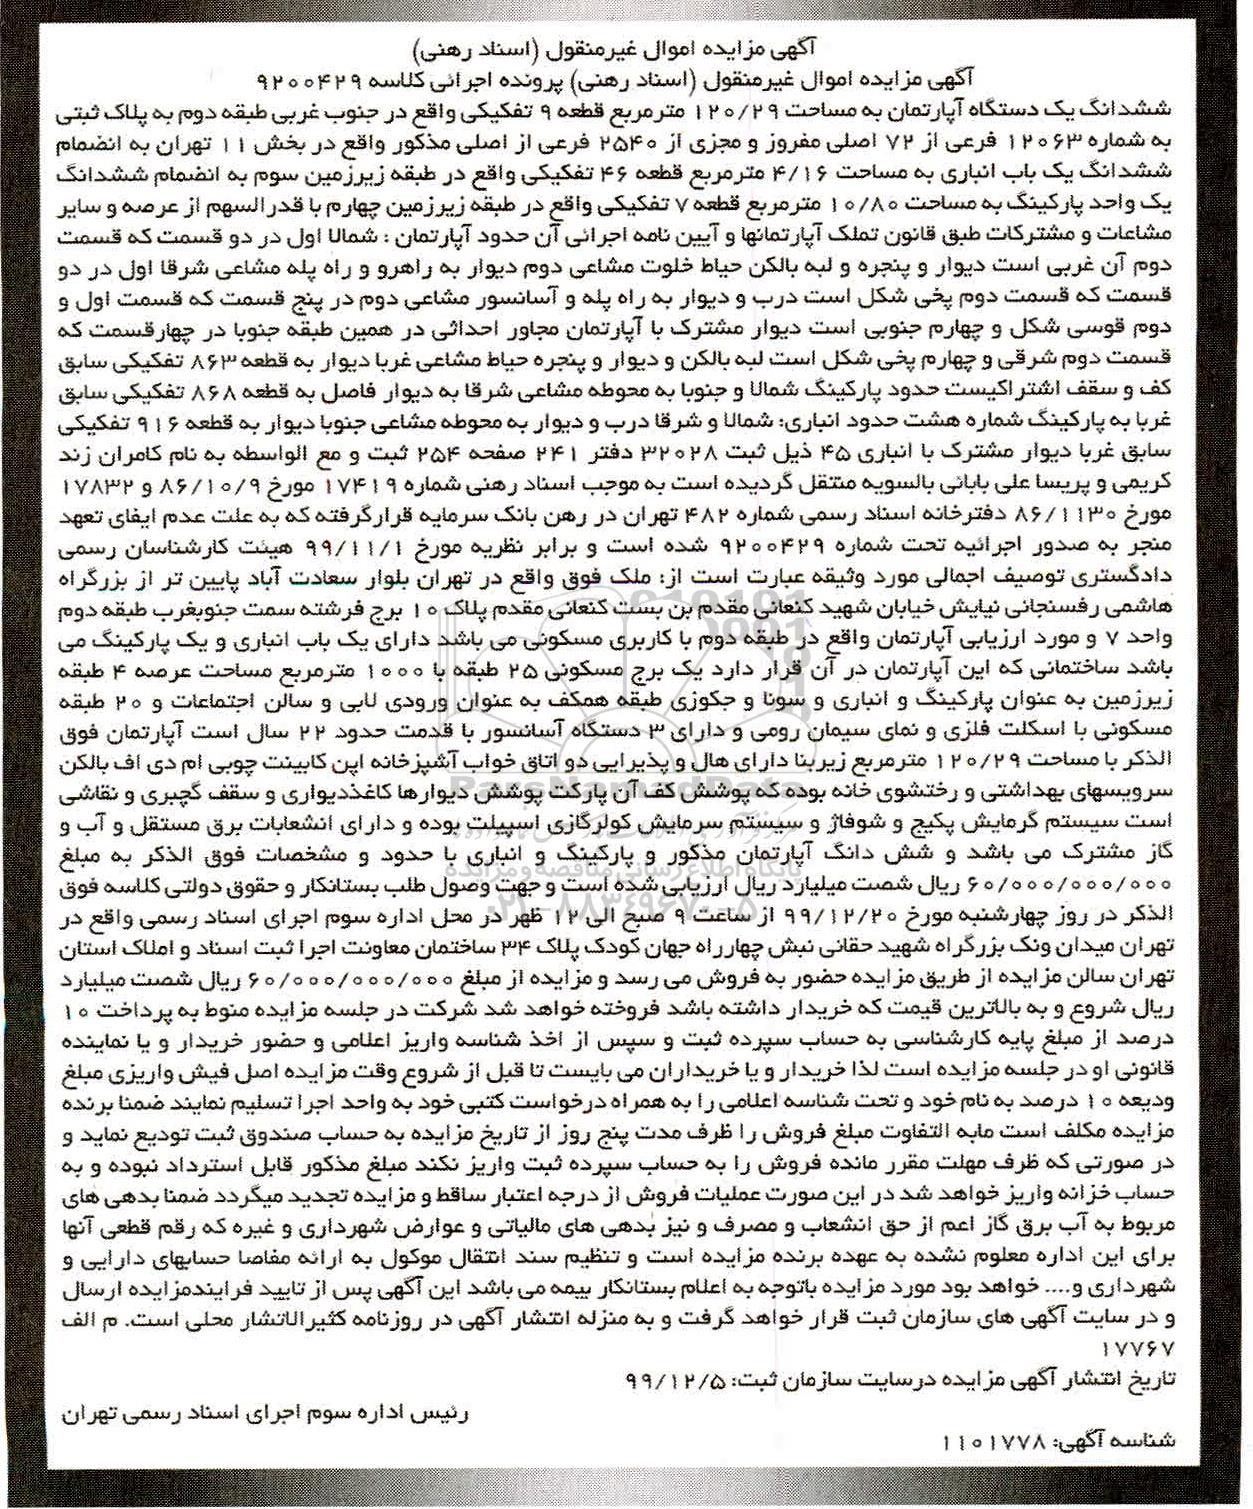 آگهی مزایده اموال غیرمنقول (اسناد رهنی)
آگهی مزایده اموال غیرمنقول (اسناد رهنی) پرونده اجرائی کلاسه ۹۲۰۰۴۲۹
ششدانگ یک دستگاه آپارتمان به مساحت ۱۲۰/۲۹ مترمربع قطعه ۹ تفکیکی واقع در جنوب غربی طبقه دوم به پلاک ثبتی
به شماره ۱۲۰۶۳ فرعی از ۷۲ اصلی مفروز و مجزی از ۲۵۴۰ فرعی از اصلی مذکور واقع در بخش ۱۱ تهران به انضمام
ششدانگ یک باب انباری به مساحت ۴/۱۶ مترمربع قطعه ۴۶ تفکیکی واقع در طبقه زیرزمین سوم به انضمام ششدانگ
یک واحد پارکینگ به مساحت ۱۰/۸۰ مترمربع قطعه ۷ تفکیکی واقع در طبقه زیرزمین چهارم با قدرالسهم از عرصه و سایر
مشاعات و مشترکات طبق قانون تملک آپارتمانها و آیین نامه اجرائی آن حدود آپارتمان : شمالا اول در دو قسمت که قسمت
دوم آن غربی است دیوار و پنجره و لبه بالکن حیاط خلوت مشاعی دوم دیوار به راهرو و راه پله مشاعی شرقا اول در دو
قسمت که قسمت دوم پخی شکل است درب و دیوار به راه پله و آسانسور مشاعی دوم در پنج قسمت که قسمت اول و
دوم قوسی شکل و چهارم جنوبی است دیوار مشترک با آپارتمان مجاور احداثی در همین طبقه جنوبا در چهارقسمت که
قسمت دوم شرقی و چهارم پخی شکل است لبه بالکن و دیوار و پنجره حیاط مشاعی غربا دیوار به قطعه ۸۶۳ تفکیکی سابق
کف و سقف اشتراکیست حدود پارکینگ شمالا و جنوبا به محوطه مشاعی شرقا به دیوار فاصل به قطعه ۸۶۸ تفکیکی سابق
غربا به پارکینگ شماره هشت حدود انباری: شمالا و شرقا درب و دیوار به محوطه مشاعی جنوبا دیوار به قطعه ۹۱۶ تفکیکی
سابق غربا دیوار مشترک با انباری ۴۵ ذیل ثبت ۳۲۰۲۸ دفتر ۲۴۱ صفحه ۲۵۴ ثبت و مع الواسطه به نام کامران زند
کریمی و پریسا علی بابائی بالسویه منتقل گردیده است به موجب اسناد رهنی شماره ۱۷۴۱۹ مورخ ۸۶/۱۰/۹ و ۱۷۸۳۲
مورخ ۸۶/۱۱۳۰ دفترخانه اسناد رسمی شماره ۴۸۲ تهران در رهن بانک سرمایه قرارگرفته که به علت عدم ایفای تعهد
منجر به صدور اجرائیه تحت شماره ۹۲۰۰۴۲۹ شده است و برابر نظریه مورخ ۹۹/۱۱/۱ هیئت کارشناسان رسمی
دادگستری توصیف اجمالی مورد وثیقه عبارت است از: ملک فوق واقع در تهران بلوار سعادت آباد پایین تر از بزرگراه
هاشمی رفسنجانی نیایش خیابان شهید کنعانی مقدم بن بست کنعانی مقدم پلاک ۱۰ برج فرشته سمت جنوبغرب طبقه دوم
واحد ۷ و مورد ارزیابی آپارتمان واقع در طبقه دوم با کاربری مسکونی می باشد دارای یک باب انباری و یک پارکینگ می
باشد ساختمانی که این آپارتمان در آن قرار دارد یک برج مسکونی ۲۵ طبقه با ۱۰۰۰ مترمربع مساحت عرصه ۴ طبقه
زیرزمین به عنوان پارکینگ و انباری و سونا و جکوزی طبقه همکف به عنوان ورودی لابی و سالن اجتماعات و ۲۰ طبقه
مسکونی با اسکلت فلزی و نمای سیمان رومی و دارای ۳ دستگاه آسانسور با قدمت حدود ۲۲ سال است آپارتمان فوق
الذکر با مساحت ۱۲۰/۲۹ مترمربع زیربنا دارای هال و پذیرایی دو اتاق خواب آشپزخانه اپن کابینت چوبی ام دی اف بالکن
سرویسهای بهداشتی و رختشوی خانه بوده که پوشش کف آن پارکت پوشش دیوارها کاغذدیواری و سقف گچبری و نقاشی
است سیستم گرمایش پکیج و شوفاژ و سیستم سرمایش کولرگازی اسپیلت بوده و دارای انشعابات برق مستقل و آب و
گاز مشترک می باشد و شش دانگ آپارتمان مذکور و پارکینگ و انباری با حدود و مشخصات فوق الذکر به مبلغ
۶۰/۰۰۰/۰۰۰/۰۰۰ ریال شصت میلیارد ریال ارزیابی شده است و جهت وصول طلب بستانکار و حقوق دولتی کلاسه فوق
الذکر در روز چهارشنبه مورخ ۹۹/۱۲/۲۰ از ساعت ۹ صبح الی ۱۲ ظهر در محل اداره سوم اجرای اسناد رسمی واقع در
تهران میدان ونک بزرگراه شهید حقانی نبش چهارراه جهان کودک پلاک ۳۴ ساختمان معاونت اجرا ثبت اسناد و املاک استان
تهران سالن مزایده از طریق مزایده حضور به فروش می رسد و مزایده از مبلغ ۶۰/۰۰۰/۰۰۰/۰۰۰ ریال شصت میلیارد
ریال شروع و به بالاترین قیمت که خریدار داشته باشد فروخته خواهد شد شرکت در جلسه مزایده منوط به پرداخت ۱۰
درصد از مبلغ پایه کارشناسی به حساب سپرده ثبت و سپس از اخذ شناسه واریز اعلامی و حضور خریدار و یا نماینده
قانونی او در جلسه مزایده است لذا خریدار و یا خریداران می بایست تا قبل از شروع وقت مزایده اصل فیش واریزی مبلغ
ودیعه ۱۰ درصد به نام خود و تحت شناسه اعلامی را به همراه درخواست کتبی خود به واحد اجرا تسلیم نمایند ضمنا برنده
مزایده مکلف است مابه التفاوت مبلغ فروش را ظرف مدت پنج روز از تاریخ مزایده به حساب صندوق ثبت تودیع نماید و
در صورتی که ظرف مهلت مقرر مانده فروش را به حساب سپرده ثبت واریز نکند مبلغ مذکور قابل استرداد نبوده و به
حساب خزانه واریز خواهد شد در این صورت عملیات فروش از درجه اعتبار ساقط و مزایده تجدید میگردد ضمنا بدهی های
مربوط به آب برق گاز اعم از حق انشعاب و مصرف و نیز بدهی های مالیاتی و عوارض شهرداری و غیره که رقم قطعی آنها
برای این اداره معلوم نشده به عهده برنده مزایده است و تنظیم سند انتقال موکول به ارائه مفاصا حسابهای دارایی و
شهرداری و.... خواهد بود مورد مزایده باتوجه به اعلام بستانکار بیمه می باشد این آگهی پس از تایید فرایندمزایده ارسال
و در سایت آگهی های سازمان ثبت قرار خواهد گرفت و به منزله انتشار آگهی در روزنامه کثیرالاتشار محلی است. م الف
۱۷۷۶۷
تاریخ انتشار آگهی مزایده درسایت سازمان ثبت: ۹۹/۱۲/۵
رئیس اداره سوم اجرای اسناد رسمی تهران
شناسه آگهی: ۱۱۰۱۷۷۸